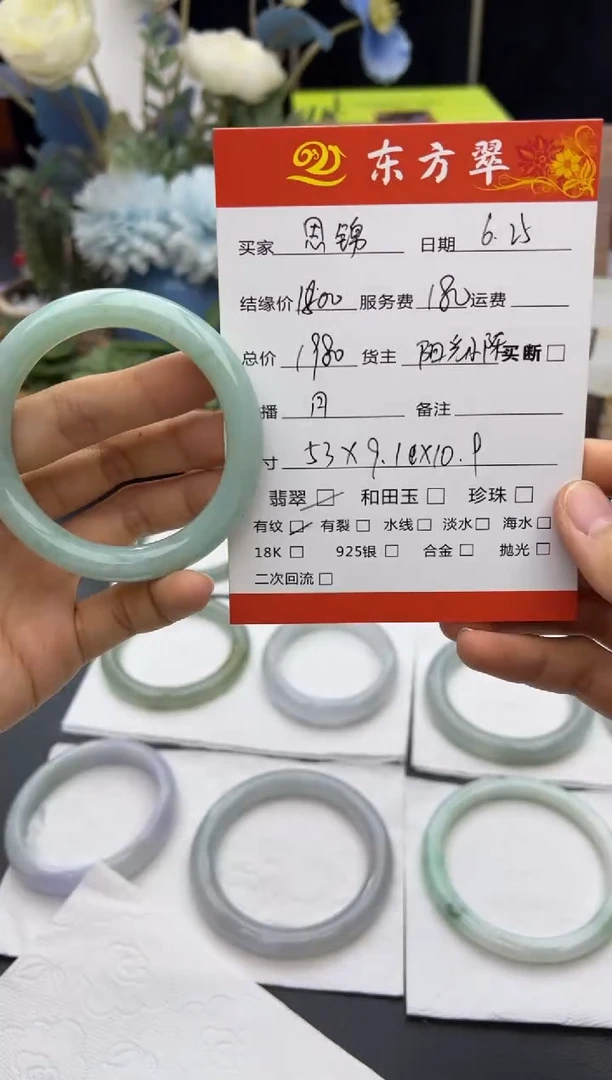 东方翠
买家 恩锦 日期 6.25
结缘价 1800 服务费 180 运费
总价 1980 货主 阳光小陈 买断
播 月 备注
寸 53X9.1X10.9
翡翠 和田玉 珍珠
有纹 有裂 水线 淡水 海水
18K 925银 合金 抛光
二次回流